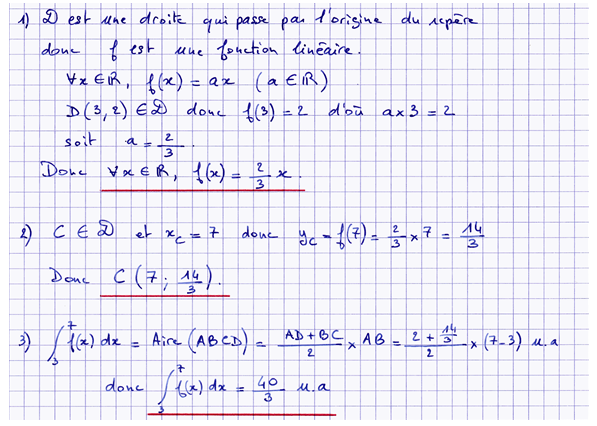 1) D est une droite qui passe par l'origine du repère
donc f est une fonction linéaire.
∀x ∈ ℝ, f(x) = ax (a ∈ ℝ)
D(3, 2) ∈ D donc f(3) = 2 d'où a×3 = 2
soit a = 2/3.
Donc ∀x ∈ ℝ, f(x) = 2/3 x.
2) C ∈ D et x_C = 7 donc y_C = f(7) = 2/3 × 7 = 14/3
Donc C (7 ; 14/3).
3) ∫₃⁷ f(x) dx = Aire (ABCD) = (AD + BC)/2 × AB = (2 + 14/3)/2 × (7-3) u.a
donc ∫₃⁷ f(x) dx = 40/3 u.a